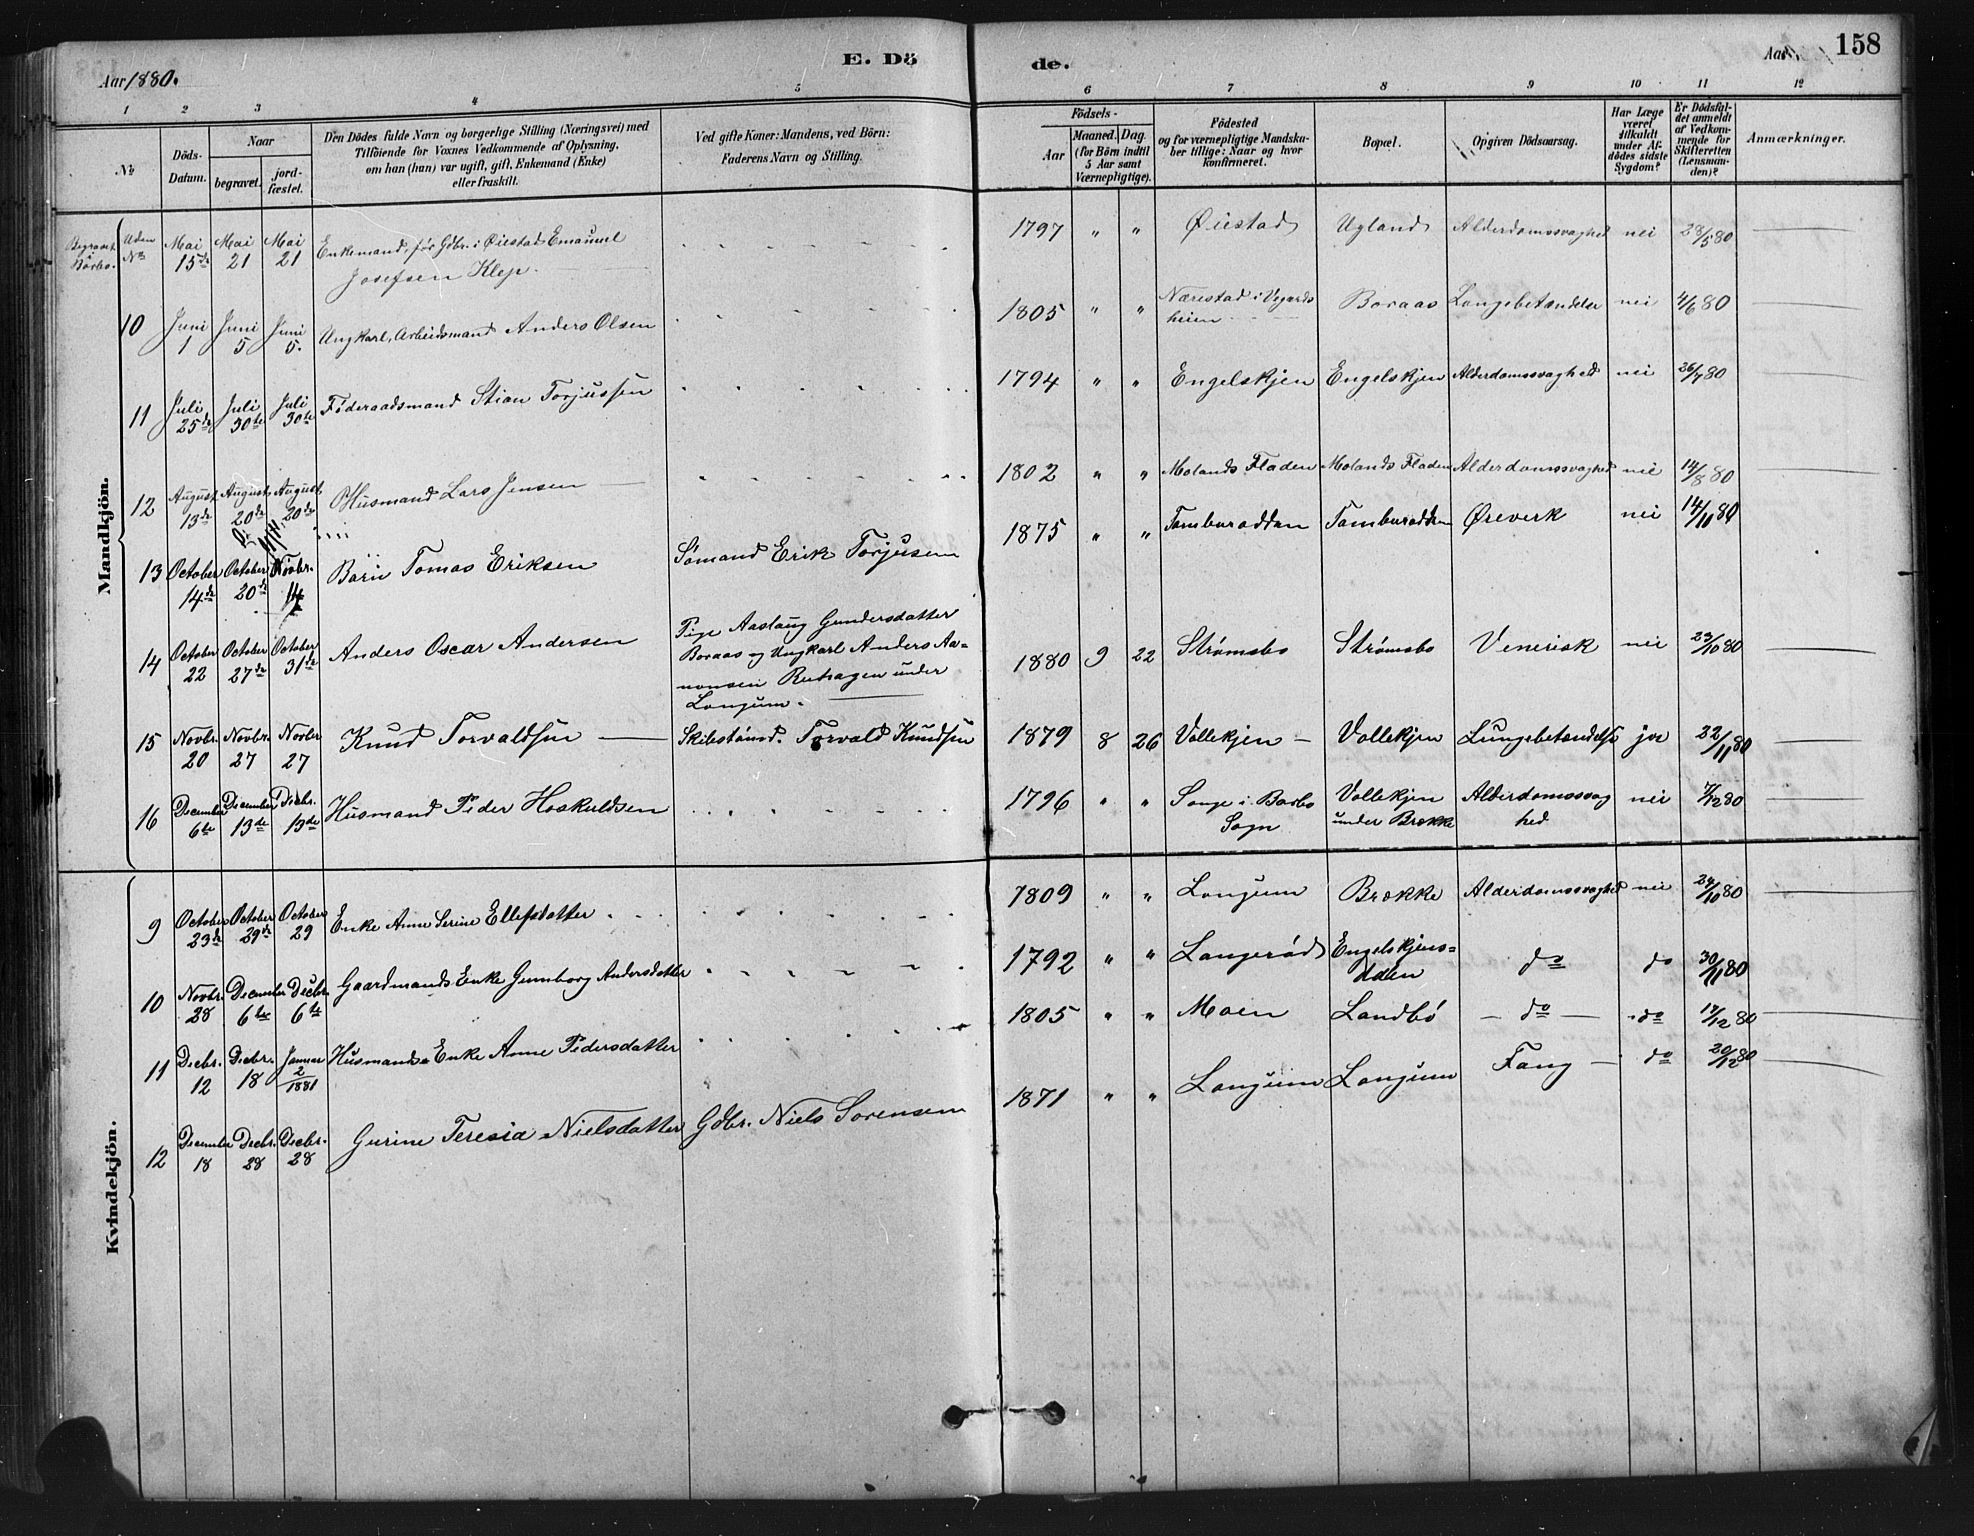 Aar 1880.
E. Dö
de.
Aar
158
1 2 3 4 5 6 7 8 9 10 11 12
No
Döds-Datum.
Naar
begravet.
jord-fæstet.
Den Dödes fulde Navn og borgerlige Stilling (Næringsvei) med
Tilföiende for Voxnes Vedkommende af Oplysning,
om han (hun) var ugift, gift, Enkemand (Enke)
eller fraskilt.
Ved gifte Koner: Mandens, ved Börn:
Faderens Navn og Stilling.
Födsels-
Aar
Maaned. Dag.
(for Börn indtil
5 Aar samt
Værnepligtige).
Födested
og for værnepligtige Mandska-
ber tillige: Naar og hvor
konfirmeret.
Bopæl.
Opgiven Dödsaarsag.
Har Læge
været
tilkaldt
under Af-
dödes sidste
Sygdom?
Er Dödsfal-
det anmeldt
af Vedkom-
mende for
Skifteretten
(Lensman-
den)?
Anmærkninger.
Mandkjön.
Begravet Barbo. Uden No Mai 15de Mai 21 Mai 21 Enkemand, før Gdbr. i Øiestad Emanuel
Josefsen Klep. 1797 " " Øiestad Ugland Alderdomssvaghed nei 28/5 80
10 Juni 1 Juni 5 Juni 5. Ungkarl, Arbeidsmand Anders Olsen 1805 " " Nærestad i Vegards
heien Boraas Lungebetændelse nei 4/6 80
11 Juli 25de Juli 30te Juli 30te Føderaadsmand Stian Torjussen 1794 " " Engelskjen Engelskjen Alderdomssvaghed nei 26/7 80
12 August 13de August 20de August 20de Husmand Lars Jensen 1802 " " Molands Fladen Molands Fladen Alderdomssvaghed nei 14/8 80
13 October 14de October 20de Novbr. 14 Barn Tomas Eriksen Sømand Erik Torjusen 1875 " " Tamburodden Tamburodden Øreverk nei 14/10 80
14 October 22 October 27de October 31te Anders Oscar Andersen Pige Aaslaug Gundersdatter
Boraas og Ungkarl Anders Aa-
nonsen Ruhagen under
Longum. 1880 9 22 Strømsbo Strømsbo Venerisk nei 23/10 80
15 Novbr. 20 Novbr. 27 Novbr 27 Knud Torvaldsen Skibstømd. Torvald Knudsen 1879 8 26 Vollekjen Vollekjen Lungebetændelse ja 22/11 80
16 December 6te December 13de Decbr. 13de Husmand Peder Hoskuldsen 1796 " " Songe i Barbo
Sogn Vollekjen
under Brække Alderdomssvag
hed nei 7/12 80
Kvindekjön.
9 October 23de October 29de October 29 Enke Anne Serine Ellefsdatter 1809 " " Longum Brække Alderdomssvaghed nei 24/10 80
10 Novbr. 28 December 6te Decbr. 6te Gaardmands Enke Gunnborg Andersdatter 1792 " " Langerød Engelskjens-
Odden do do 30/11 80
11 Decbr. 12 Decbr. 18 Januar 2/1881 Husmands Enke Anne Pedersdatter 1805 " " Moen Landbø do do 17/12 80
12 December 18 Decbr. 28 Decbr. 28 Gurine Teresia Nielsdatter Gdbr. Niels Sorensen 1871 " " Longum Longum Fang do 20/12 80